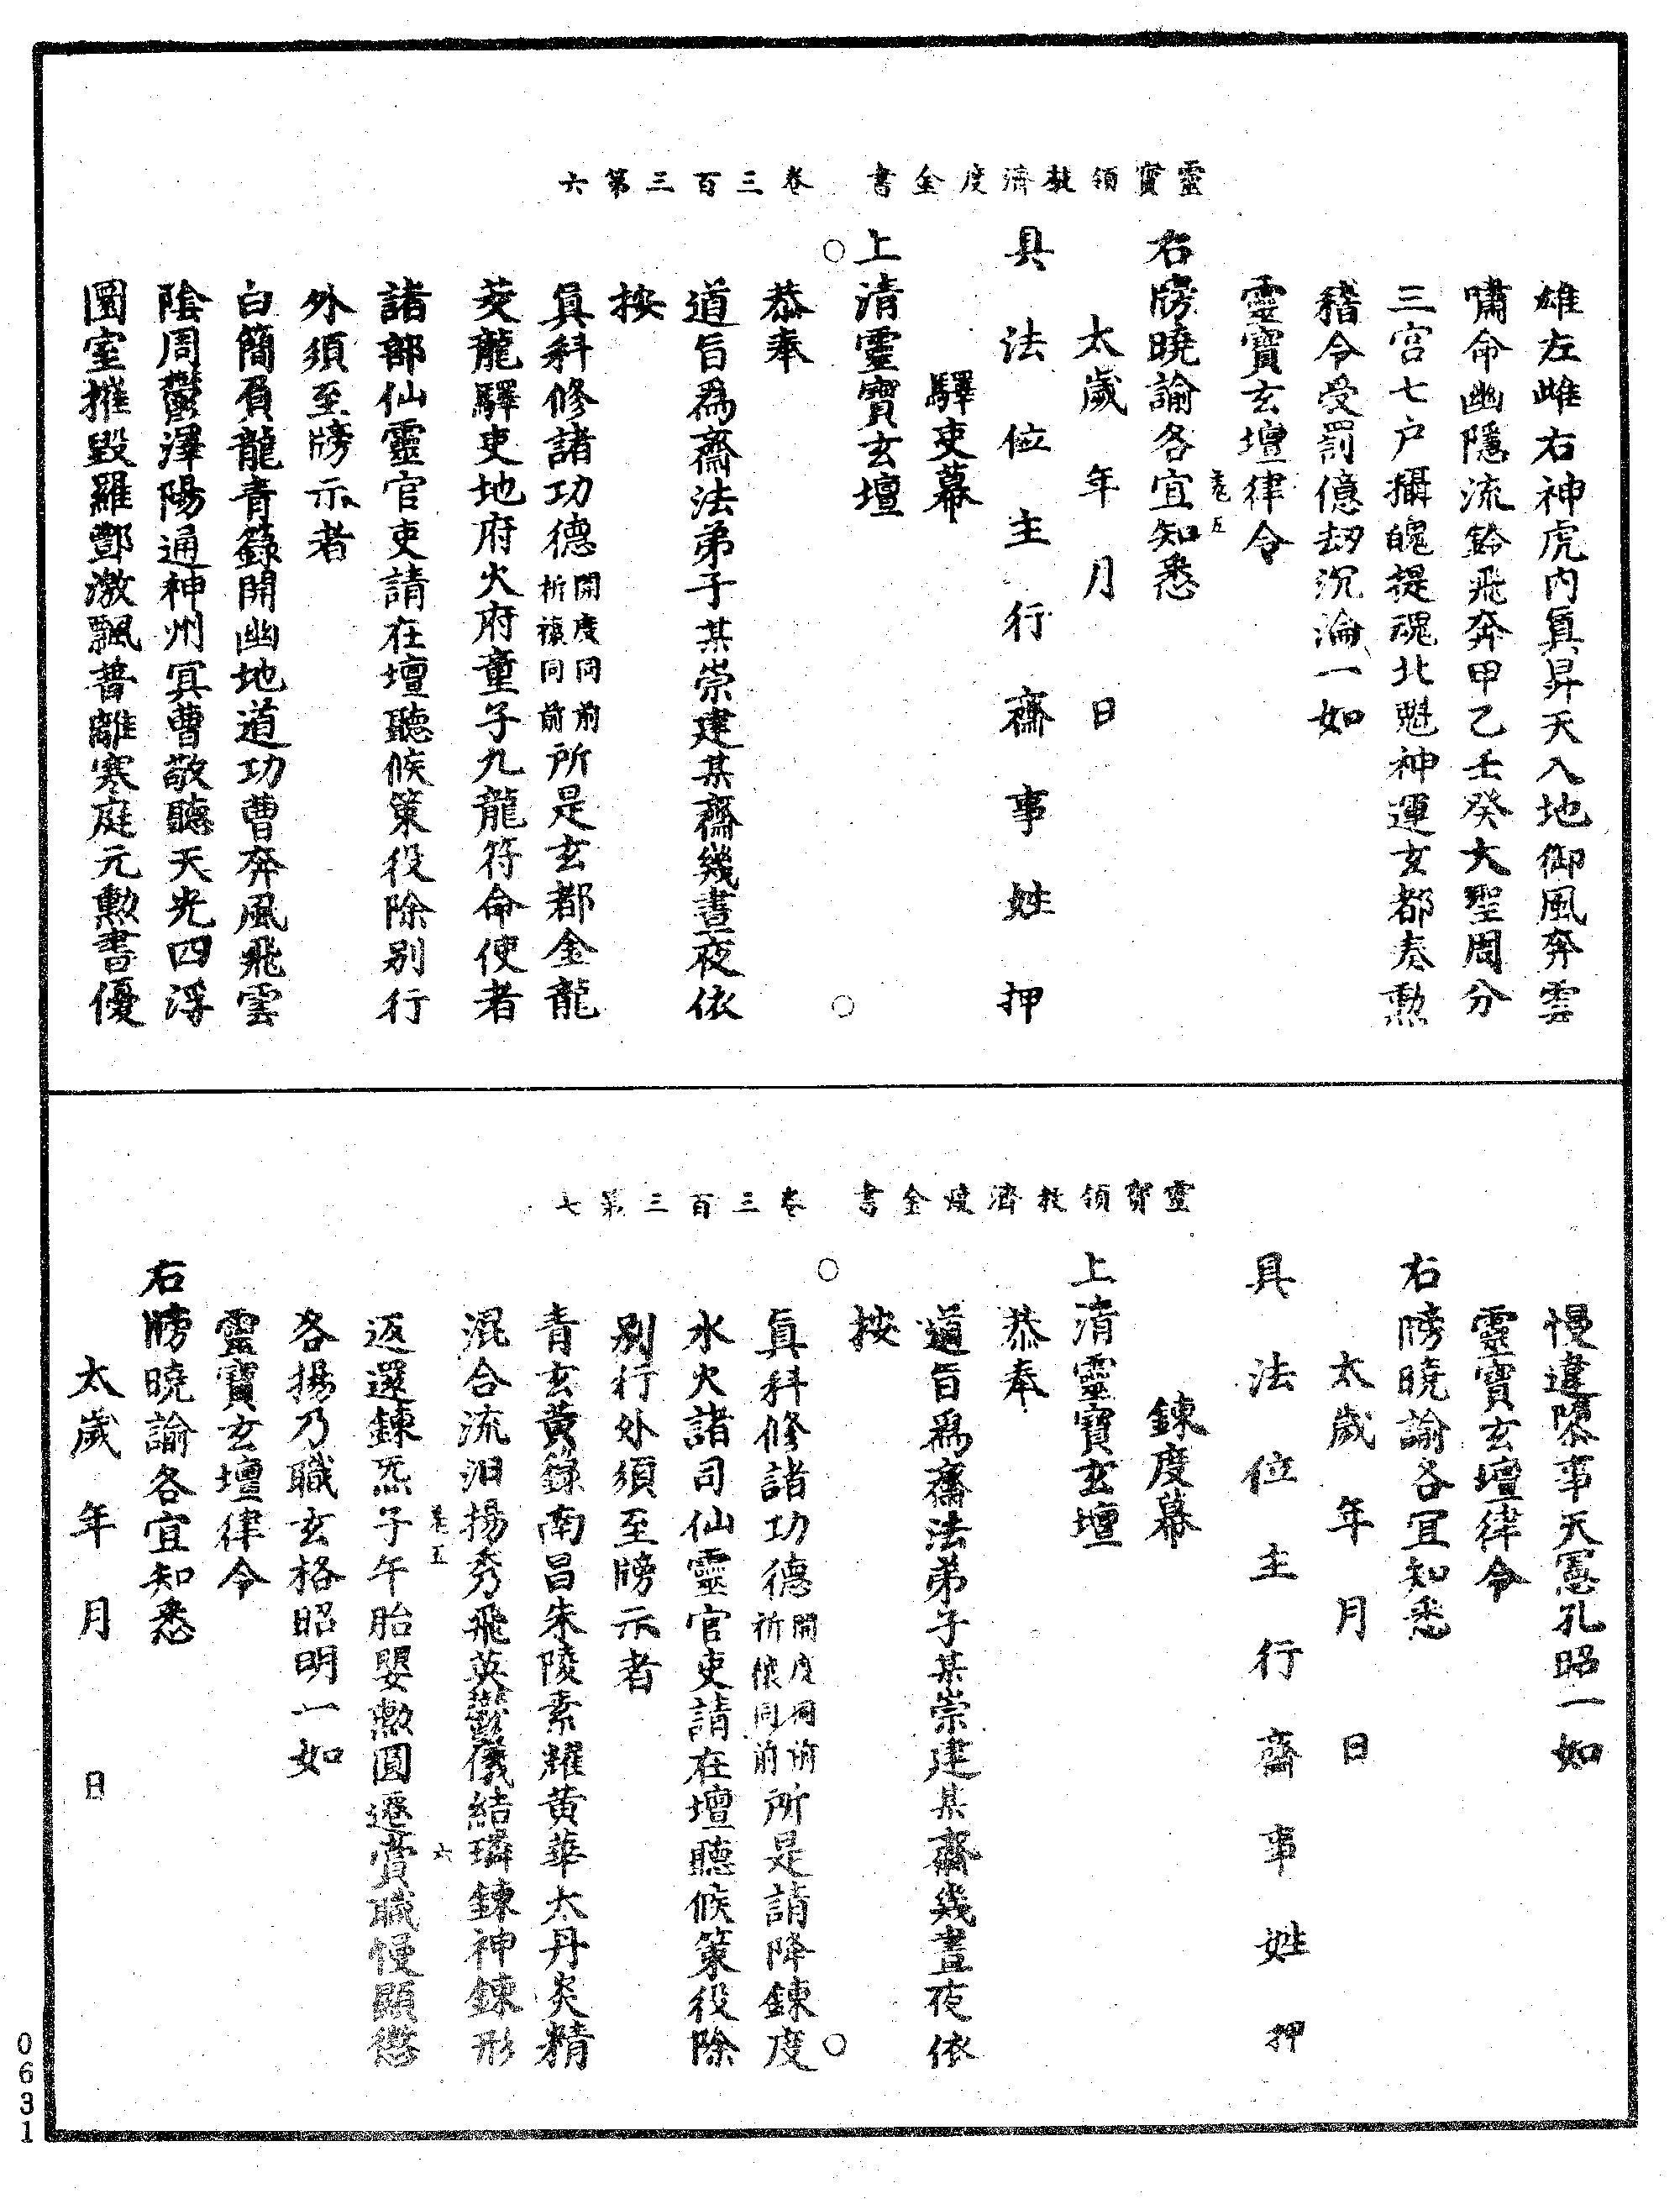 靈寶領教濟度金書　卷三百三第六
雄左雌右神虎內眞昇天入地御風奔雲
嘯命幽隱流鈴飛奔甲乙壬癸大聖周分
三宮七戶攝魄提魂北魁神運玄都奏勲
稽令受罰億劫沉淪一如
靈寶玄壇律令
右牓曉諭各宜知悉
太歲　年　月　日
具法位主行齋事姓　押
驛吏幕
上清靈寶玄壇
恭奉
道旨爲齋法弟子某崇建某齋幾晝夜依
按
眞科修諸功德開度同前祈禳同前所是玄都金龍
茭龍驛吏地府火府童子九龍符命使者
諸部仙靈官吏請在壇聽候策役除別行
外須至牓示者
白簡負龍青籙開幽地道功曹奔風飛雲
陰周鬱澤陽通神州冥曹敬聽天光四浮
圜室摧毀羅酆激飄普離寒庭元勲書優
靈寶領教濟度金書　卷三百三第七
慢違隳事天憲孔昭一如
靈寶玄壇律令
右牓曉諭各宜知悉
太歲　年　月　日
具法位主行齋事姓　押
鍊度幕
上清靈寶玄壇
恭奉
道旨爲齋法弟子某崇建某齋幾晝夜依
按
眞科修諸功德開度同前祈禳同前所是請降鍊度
水火諸司仙靈官吏請在壇聽候策役除
別行外須至牓示者
青玄黃籙南昌朱陵素耀黃華太丹炎精
混合流汨揚秀飛英鬱儀結璘鍊神鍊形
返還鍊炁子午胎嬰勲圓遷賞職慢顯懲
各揚乃職玄格昭明一如
靈寶玄壇律令
右牓曉諭各宜知悉
太歲　年　月　日
0631